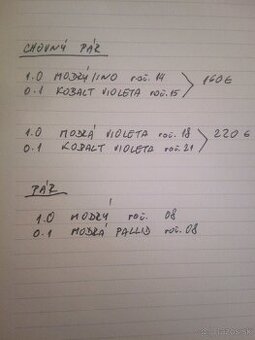 CHOVNÝ PÁR
1.0 MODRÝ/INO roč. 14
0.1 KOBALT VIOLETA roč. 15
160€
1.0 MODRÁ VIOLETA roč. 18
0.1 KOBALT VIOLETA roč. 21
220€
PÁR
1.0 MODRÝ roč. 08
0.1 MODRÁ PALLID roč. 08